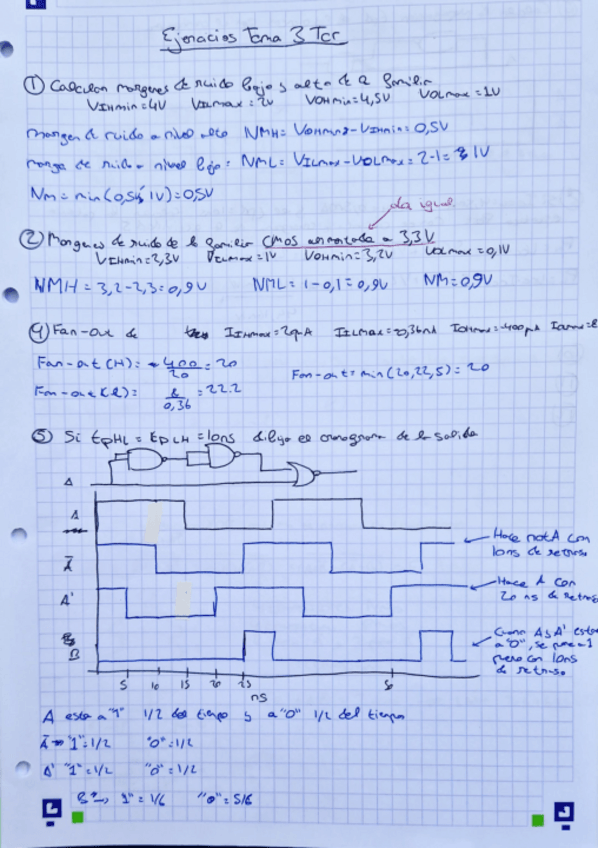 Ejercicios Tema 3 Tcr
① Calcular margenes de ruido bajo y alto de la familia
VIHmin=4V VILmax=2V VOHmin=4,5V VOLmax=1V
margen de ruido a nivel alto NMH= VOHmin - VIHmin= 0,5V
margen de ruido a nivel bajo: NML= VILmax-VOLmax= 2-1= 1V
NM= min(0,5 y 1V)=0,5V
Da igual
② Margenes de ruido de la familia CMOS alimentada a 3,3V
VIHmin=2,3V VILmax=1V VOHmin=3,2V VOLmax=0,1V
NMH= 3,2-2,3=0,9V NML= 1-0,1=0,9V NM=0,9V
④ Fan-out de IIHmax=20µA IILmax=0,36mA IOHmax=-400µA
Fan-out(H)= 400/20 = 20
Fan-out=min(20,22,5)=20
Fan-out(L)= 8/0,36 = 22.2
⑤ Si tpHL = tpLH = 10ns dibuja el cronograma de la salida
A
A
Ā
Hace not A con
10ns de retraso
A'
Hace A con
20 ns de retraso
B
Cuando A y A' estan
a "0", se pone a 1
pero con 10ns
de retraso
5 10 15 20 25 50
ns
A esta a "1" 1/2 del tiempo y a "0" 1/2 del tiempo
Ā → "1"=1/2 "0"=1/2
A' "1"=1/2 "0"=1/2
B → "1"=1/6 "0"=5/6